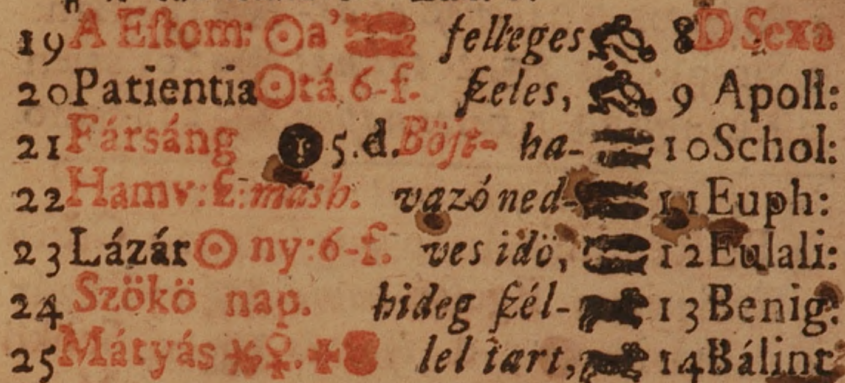 19 A Eſtom: ☉ a’ felleges 8 D Sexa
20 Patientia ☉ tá 6-f. ſzeles, 9 Apoll:
21 Fársáng 5.d. Böjt- ha- 10 Schol:
22 Hamv: ſz: másh. vazó ned- 11 Euph:
23 Lázár ☉ ny: 6-f. ves idö, 12 Eulali:
24 Szökö nap. hideg ſzél- 13 Benig:
25 Mátyás ⚹ ♀. lel tart, 14 Bálint